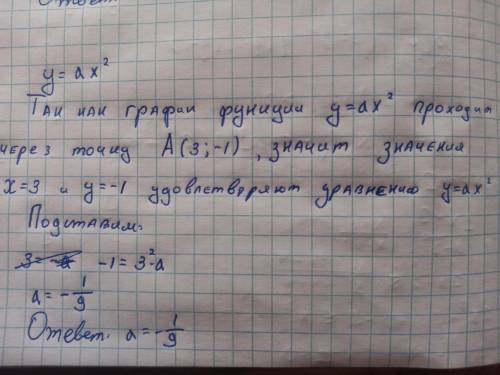 Ответ:
y = ax²
Так как график функции y=ax² проходит
через точку A(3;-1), значит значения
x=3 и y=-1 удовлетворяют уравнению y=ax²
Подставим:
-1 = 3²·a
a = -1/9
Ответ: a = -1/9